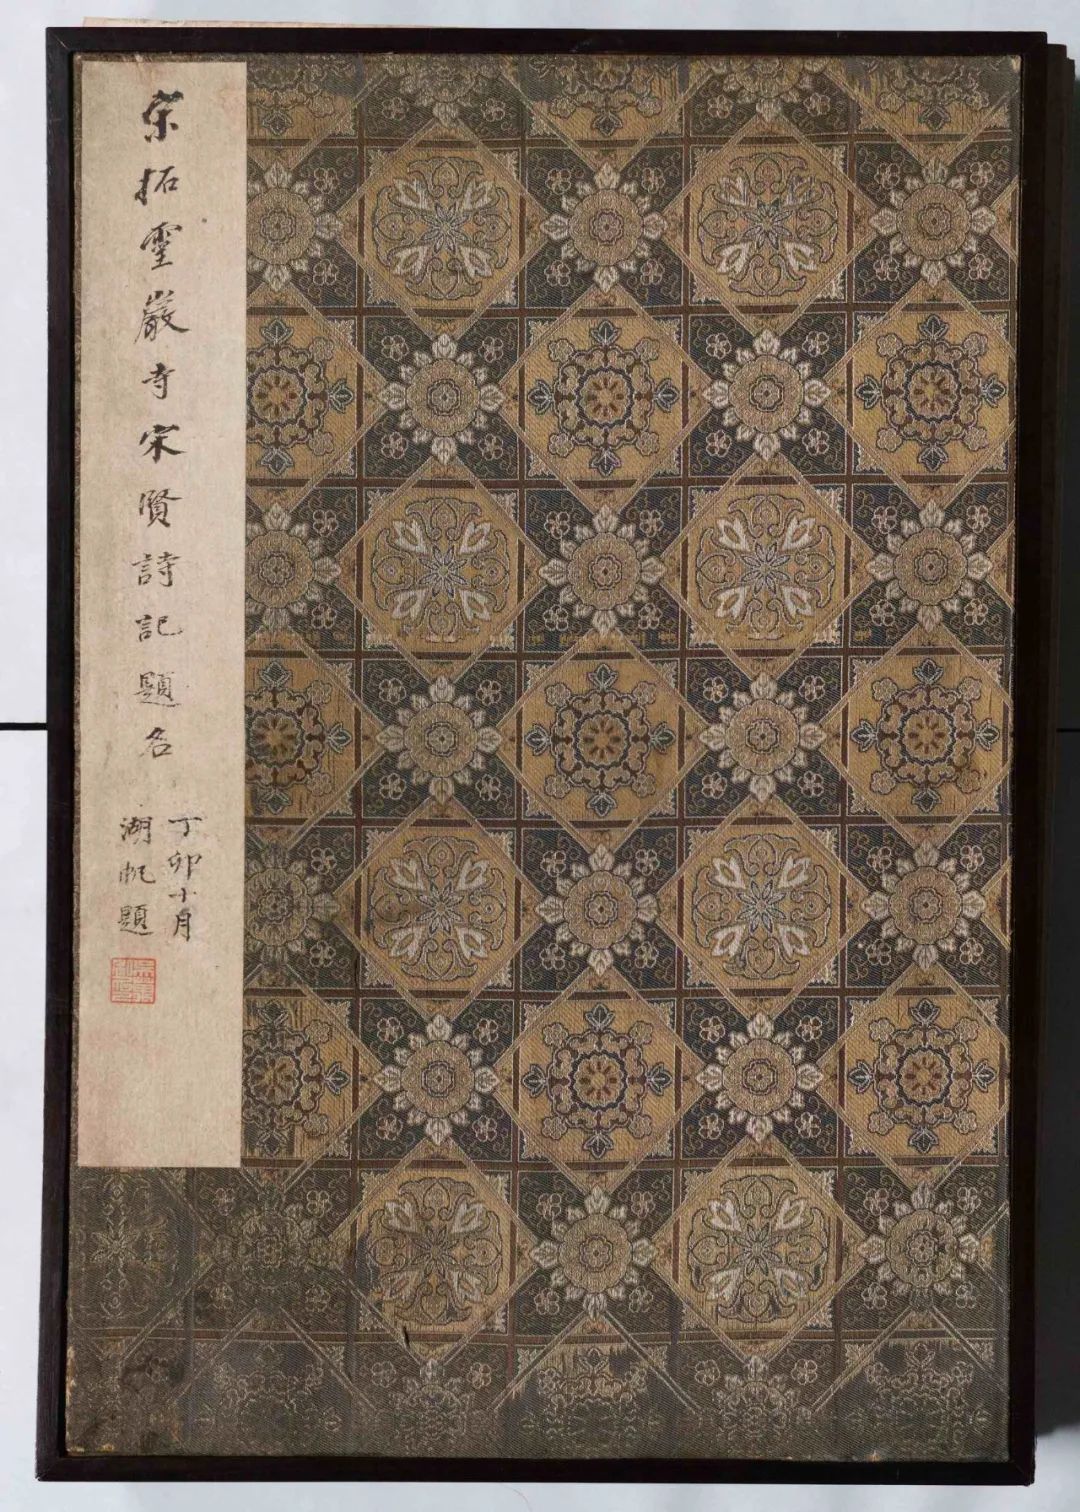 宋拓靈巖寺宋賢詩記題名
丁卯十月
湖帆題